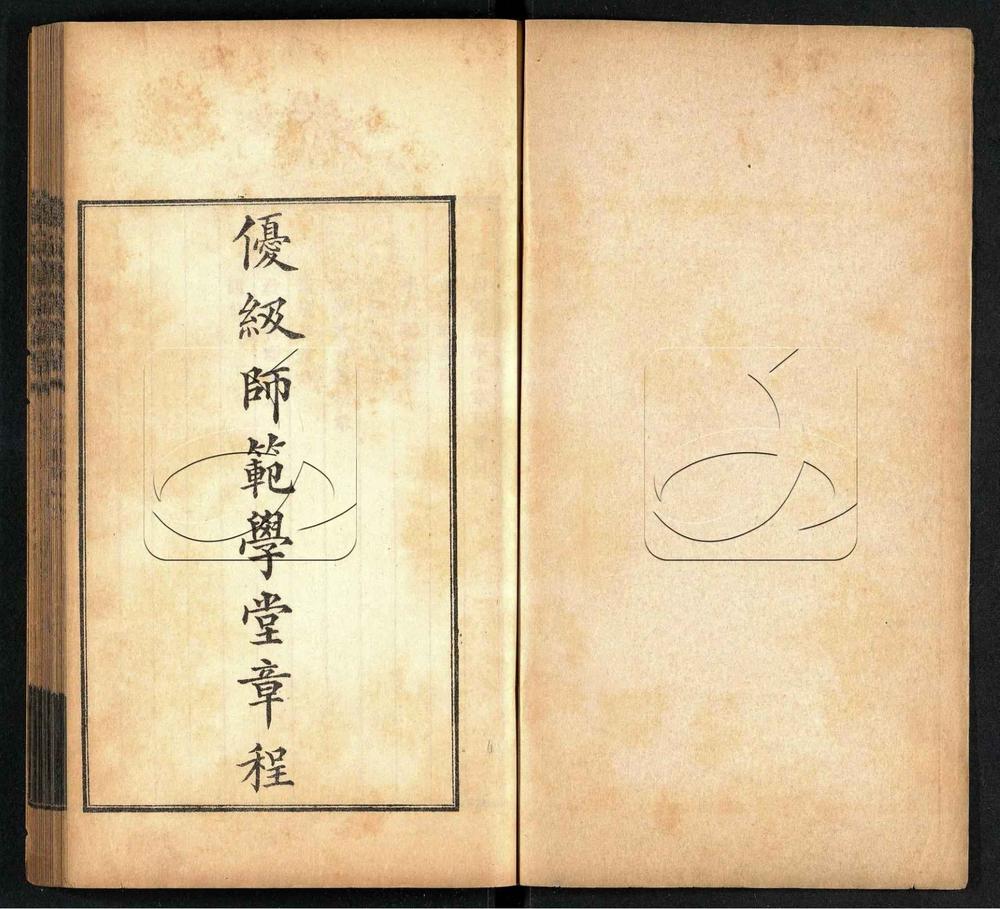 優級師範學堂章程